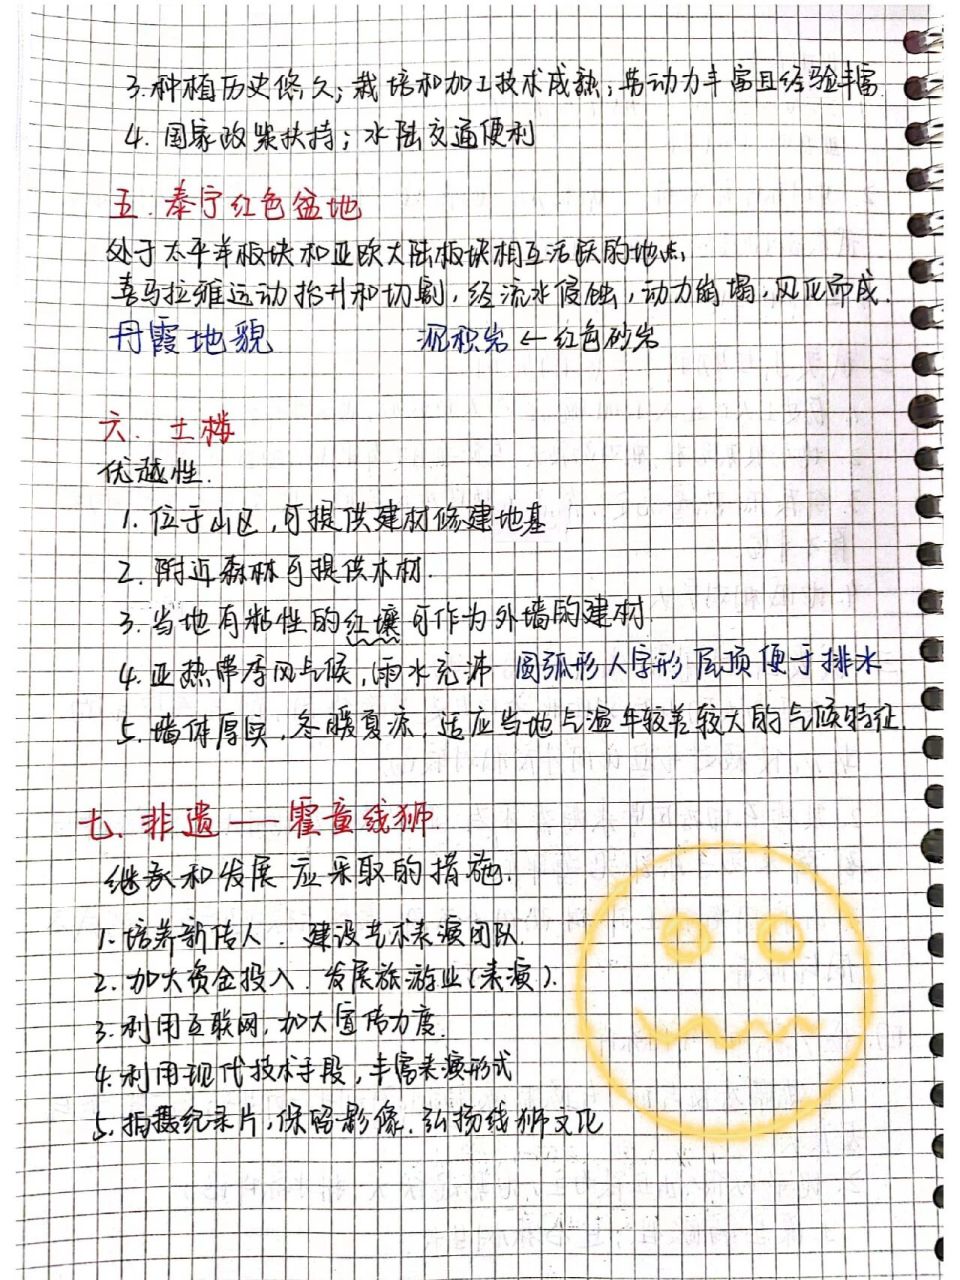 3.种植历史悠久；栽培和加工技术成熟；劳动力丰富且经验丰富
4.国家政策扶持；水陆交通便利
五.泰宁红色盆地
处于太平洋板块和亚欧大陆板块相互活跃的地点，
喜马拉雅运动抬升和切割，经流水侵蚀，动力崩塌，风化而成.
丹霞地貌 沉积岩←红色砂岩
六.土楼
优越性.
1.位于山区，可提供建材修建地基
2.附近森林可提供木材.
3.当地有粘性的红壤可作为外墙的建材
4.亚热带季风气候，雨水充沛 圆弧形人字形屋顶便于排水
5.墙体厚实，冬暖夏凉，适应当地气温年较差较大的气候特征.
七、非遗——霍童线狮.
继承和发展应采取的措施.
1.培养新传人.建设艺术表演团队.
2.加大资金投入.发展旅游业(表演).
3.利用互联网，加大宣传力度.
4.利用现代技术手段，丰富表演形式
5.拍摄纪录片，保留影像.弘扬线狮文化